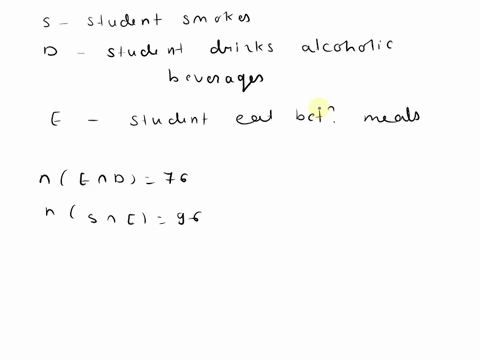 S - student smokes
D - student drinks alcoholic
beverages
E - student eat bet? meals
n ( E ∩ D ) = 76
n ( S ∩ E ) = 96